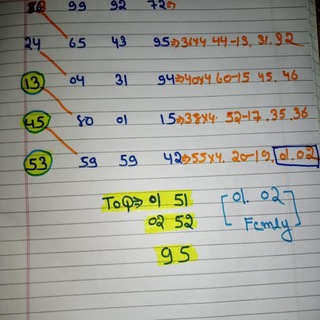 99 92 72⇒
24 65 43 95⇒36x4 44-13. 31. 32
13 04 31 94⇒40x4 60-15 45. 46
45 80 01 15⇒38x4 52-17. 35. 36
53 59 59 42⇒55x4. 20-19. 01. 02
TOP⇒ 01 51 [01. 02
02 52 Femly]
95